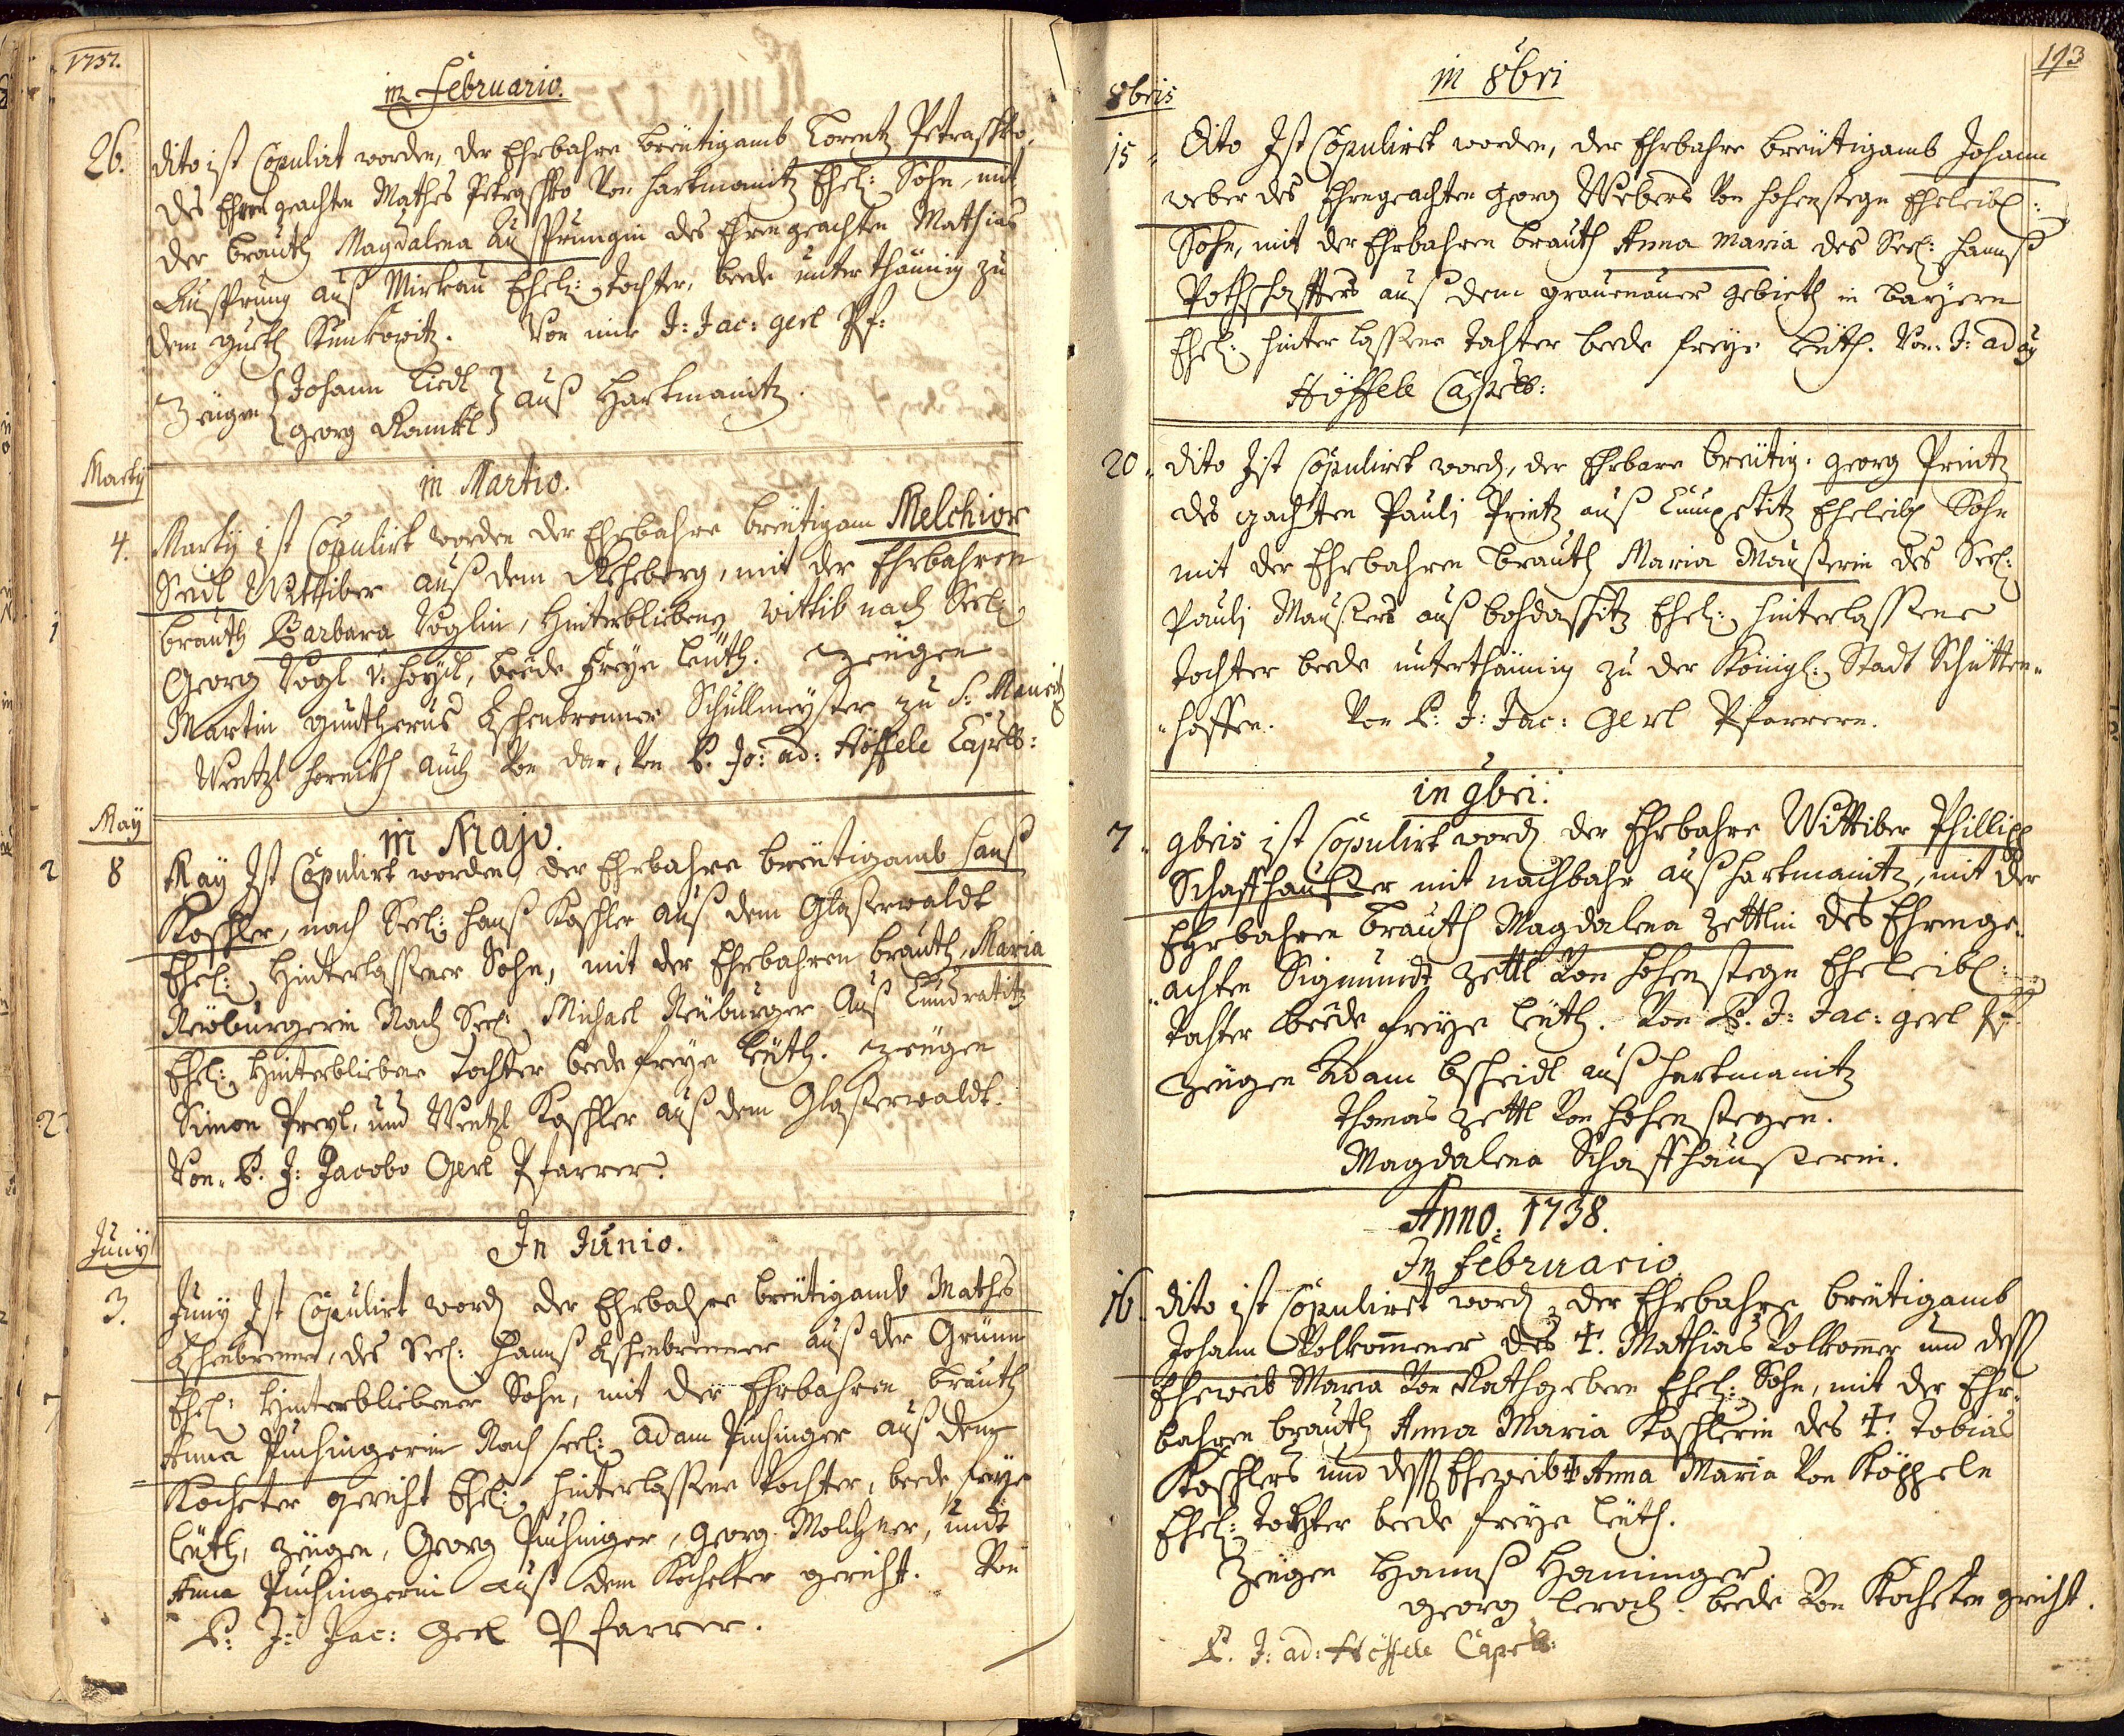 1737.
in Februario.
26. dito ist Copulirt worden, der Ehrbahre breütigamb Lorentz Petraschko
des Ehrengeachten Mathes Petraschko Von hartmanitz Ehel: Sohn, mit
der brauth Magdalena Aussprungin des Ehrengeachten Mathias
Aussprung auß Mirkau Ehel: Tochter, beede unterthännig zu
dem gueth Kunkowitz. Von mir J: Jac: gerl Pf:
Zeügen { Johann Liedl
georg Kamikl } auß Hartmanitz.
Marty
in Martio.
4. Marty ist Copulirt worden der Ehrbahre breütigam Melchior
Seidl Wittiber auß dem Rehberg, mit der Ehrbahren
brauth Barbara Voglin, Hinterbliebeng wittib nach Seel:
Georg Vogl v: , beede Freye leüth. Zeügen
Martin guntherus Eschenbrenner Schullmeyster zu S: Mauritz
Wentzl hornikh auch Von dar, Von P. Jo: ad: Höffele Capell:
May
in Majo.
8 May Ist Copulirt worden, der Ehrbahre breütigamb hanß
Koschler, nach Seel: hanß Koschler auß dem Glaßerwaldt
Ehel: Hinterlassener Sohn, mit der Ehrbahren brauth Maria
Neüburgerin Nach Seel: Michael Neüburger Auß Kundratitz
Ehel: Hinterbliebene Tochter beede freye leüth. Zeügen
Simon Preyl, und Wentzl Koschler auß dem Glaßerwaldt.
Von P. J: Jacobo Gerl Pfarrer.
Juny
In Junio.
3. Juny Ist Copulirt word der Ehrbahre breütigamb Mathes
Eschenbrenner, des Seel: Hannß Eschenbrenner auß der Grünn
Ehel: Hinterbliebener Sohn, mit der Ehrbahren brauth
Anna Puchingerin Nach seel: adam Puchinger auß dem
Kocheter gericht Ehel: hinterlassene Tochter, beede freye
leüth, zeügen, Georg Puchinger, georg Molchner, undt
Anna Puchingerin auß dem Kochetter gericht. Von
P: J: Jac: Gerl Pfarrer.
193
8bris
in 8bri
15. Dito Ist Copulirt worden, der Ehrbahre breütigamb Johann
weber des Ehrngeachten Georg Webers Von hohenstegn Eheleibl:
Sohn, mit der Ehrbahren brauth Anna Maria des Seel: hannß
Pothschaffters auß dem grauenauer gebieth in bayern
Ehel: hinterlassene Tochter beede freye leüth. Von J: ad
Höffele Capell:
20. dito Ist Copulirt word, der Ehrbare breütig. georg Printz
des gachten Paulj Printz auß Eheleibl Sohn
mit der Ehrbahren brauth Maria Maußerin des Seel:
Paulj Maußers auß bohdaschitz Ehel: hinterlassene
Tochter beede unterthännig zu der Königl: Stadt Schütten-
hoffen. Von P: J: Jac: Gerl Pfarrern.
in 9bri.
7. 9bris ist Copulirt word der Ehrbahre Wittiber Phillipp
Schaffhaußer mit nachbahr auß hartmanitz, mit der
Ehrbahren brauth Magdalena Zettlin des Ehrenge-
achten Sigmundt Zettl Von hohenstegn Eheleibl:
Tochter beede freye leüth. Von P. J: Jac: gerl Pf:
zeügen Adam bscheidl auß hartmanitz
Thomas Zettl Von hohenstegen.
Magdalena Schaffhaußerin.
Anno. 1738.
In Februario
16. dito ist Copulirt word, der Ehrbahre breütigamb
Johann Volkommener des †. Mathias Volkommer und dess
Eheweib Maria Von Rathgebern Ehel: Sohn, mit der Ehr-
bahren brauth Anna Maria Koschlerin des †. Tobias
Koschlers und dess Eheweib † Anna Maria Von Köppeln
Ehel: Tochter beede freye leüth.
Zeügen Hannß Haninger
georg lerch. beede Von Kocheten gericht.
P. J: ad: Höffele Capell: